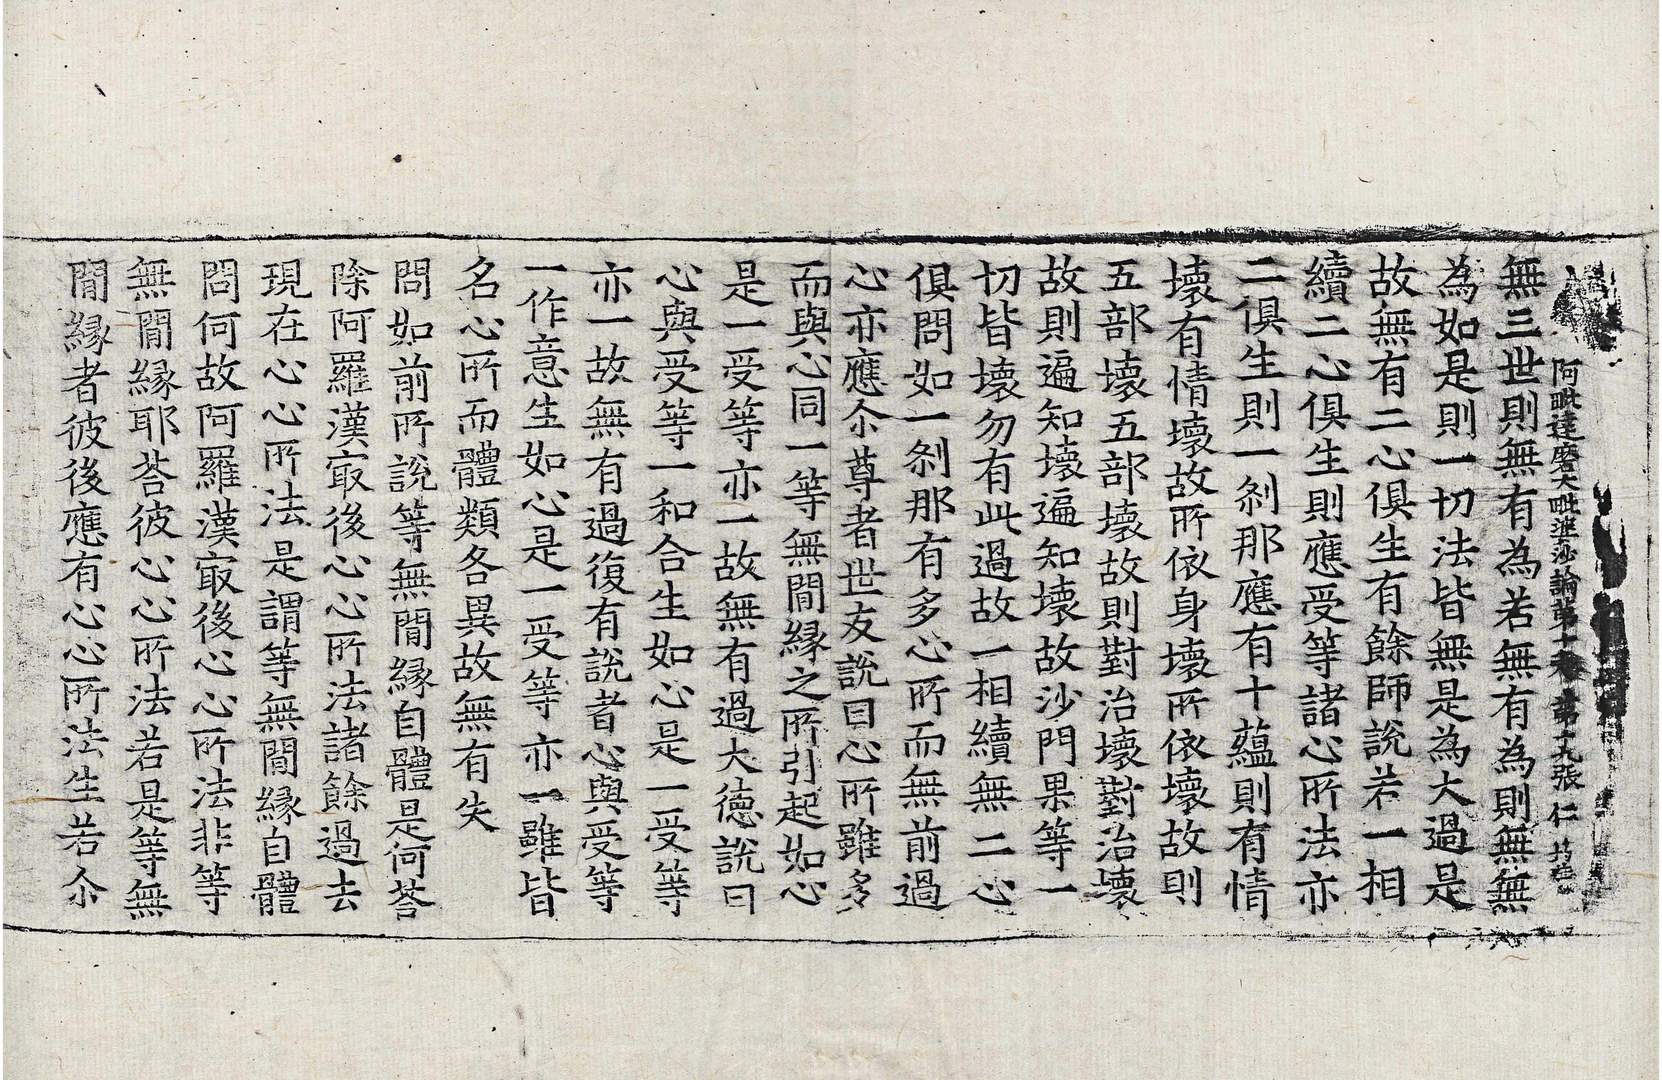 阿毗達磨大毗婆沙論第十 第十九張 仁
無三世則無有為若無有為則無無
為如是則一切法皆無是為大過是
故無有二心俱生有餘師說若一相
續二心俱生則應受等諸心所法亦
二俱生則一剎那應有十蘊則有情
壞有情壞故所依身壞所依壞故則
五部壞五部壞故則對治壞對治壞
故則遍知壞遍知壞故沙門果等一
切皆壞勿有此過故一相續無二心
俱問如一剎那有多心所而無前過
心亦應尒尊者世友說曰心所雖多
而與心同一等無間緣之所引起如心
是一受等亦一故無有過大德說曰
心與受等一和合生如心是一受等
亦一故無有過復有說者心與受等
一作意生如心是一受等亦一雖皆
名心所而體類各異故無有失
問如前所說等無間緣自體是何荅
除阿羅漢㝡後心心所法諸餘過去
現在心心所法是謂等無間緣自體
問何故阿羅漢㝡後心心所法非等
無間緣耶荅彼心心所法若是等無
間緣者彼後應有心心所法生若尒